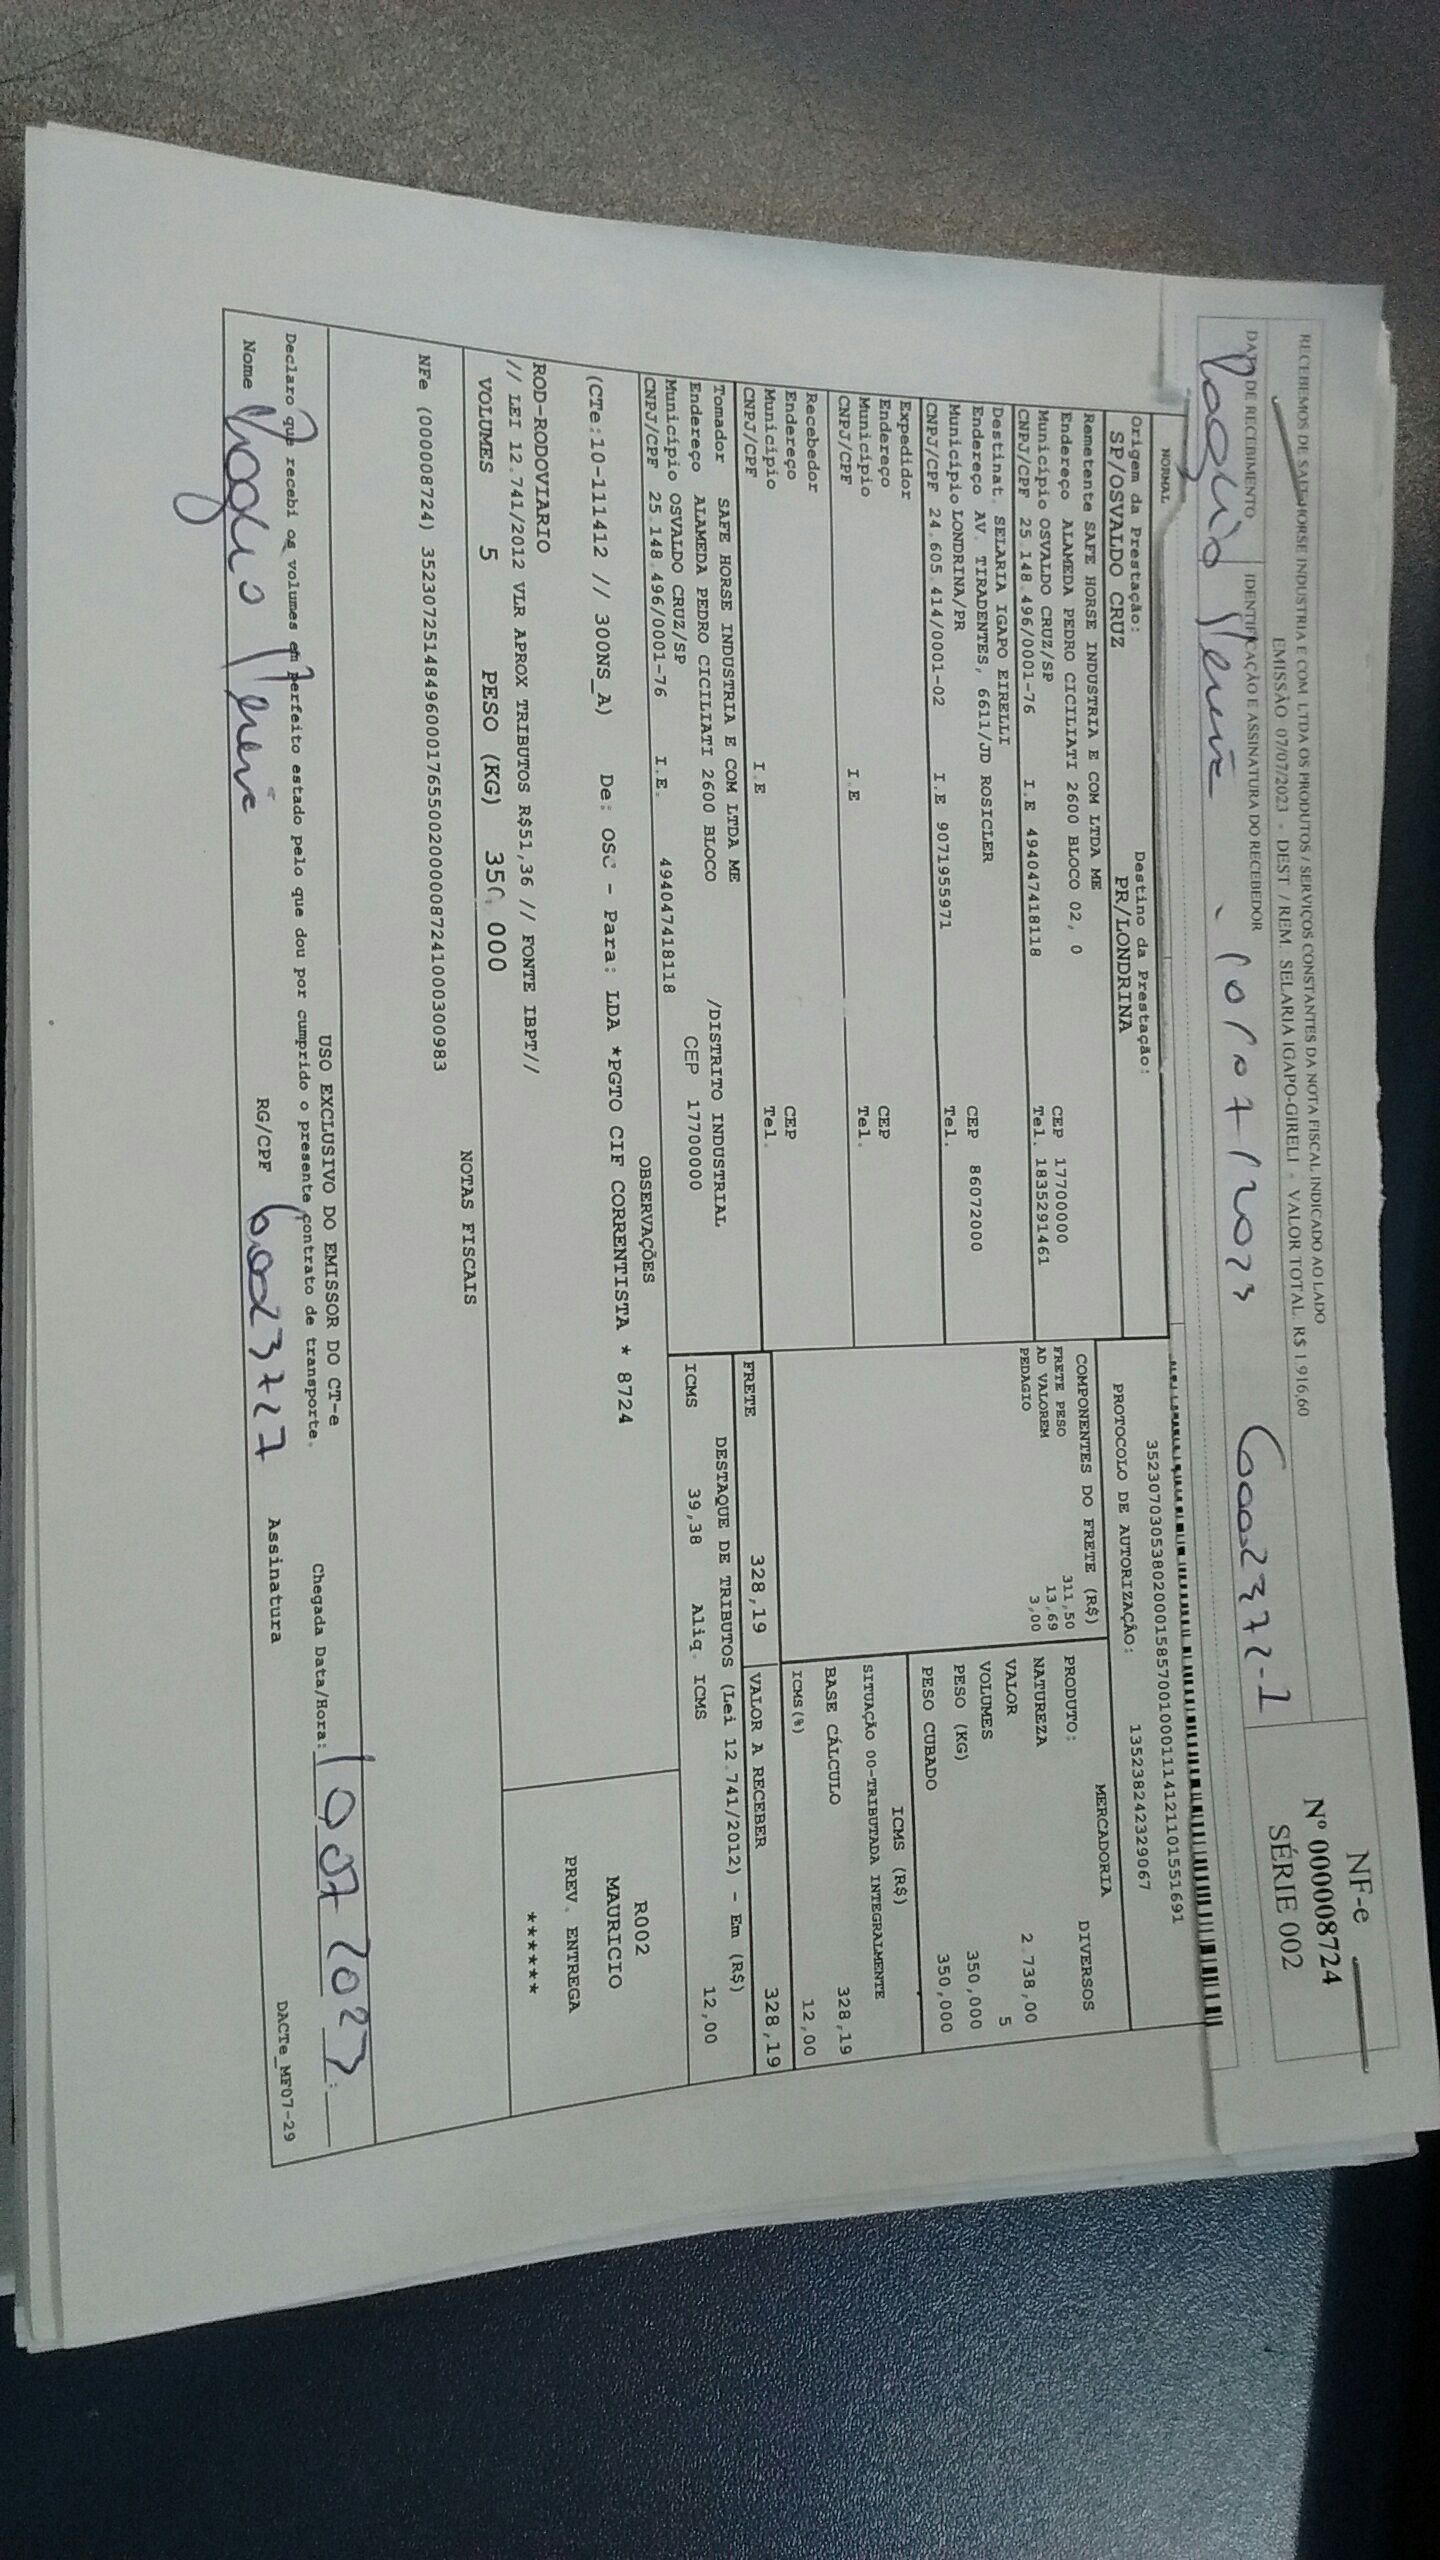 RECEBEMOS DE SAFE HORSE INDUSTRIA E COM LTDA OS PRODUTOS / SERVIÇOS CONSTANTES DA NOTA FISCAL INDICADO AO LADO
EMISSÃO 07/07/2023 - DEST / REM. SELARIA IGAPO-GIRELI - VALOR TOTAL R$ 1.916,60
NF-e
Nº 000008724
SÉRIE 002
DATA DE RECEBIMENTO
IDENTIFICAÇÃO E ASSINATURA DO RECEBEDOR
10/07/2023
6002372-1
NORMAL
35230703053802000158570010001114121101551691
Origem da Prestação:
SP/OSVALDO CRUZ
Destino da Prestação:
PR/LONDRINA
PROTOCOLO DE AUTORIZAÇÃO: 135238242329067
Remetente SAFE HORSE INDUSTRIA E COM LTDA ME
Endereço ALAMEDA PEDRO CICILIATI 2600 BLOCO 02, 0 CEP 17700000
Município OSVALDO CRUZ/SP Tel. 1835291461
CNPJ/CPF 25.148.496/0001-76 I.E 494047418118
Destinat. SELARIA IGAPO EIRELLI
Endereço AV. TIRADENTES, 6611/JD ROSICLER CEP 86072000
Município LONDRINA/PR Tel.
CNPJ/CPF 24.605.414/0001-02 I.E 9071955971
Expedidor
Endereço CEP
Município Tel.
CNPJ/CPF I.E
Recebedor
Endereço CEP
Município Tel.
CNPJ/CPF I.E
Tomador SAFE HORSE INDUSTRIA E COM LTDA ME
Endereço ALAMEDA PEDRO CICILIATI 2600 BLOCO /DISTRITO INDUSTRIAL
Município OSVALDO CRUZ/SP CEP 17700000
CNPJ/CPF 25.148.496/0001-76 I.E. 494047418118
COMPONENTES DO FRETE (R$)
FRETE PESO 311,50
AD VALOREM 13,69
PEDAGIO 3,00
MERCADORIA
PRODUTO: DIVERSOS
NATUREZA
VALOR 2.738,00
VOLUMES 5
PESO (KG) 350,000
PESO CUBADO 350,000
ICMS (R$)
SITUAÇÃO 00-TRIBUTADA INTEGRALMENTE
BASE CÁLCULO 328,19
ICMS(%) 12,00
FRETE 328,19
VALOR A RECEBER 328,19
DESTAQUE DE TRIBUTOS (Lei 12.741/2012) - Em (R$)
ICMS 39,38 Aliq. ICMS 12,00
OBSERVAÇÕES
(CTe:10-111412 // 300NS_A) De: OSC - Para: LDA *PGTO CIF CORRENTISTA * 8724
ROD-RODOVIARIO
// LEI 12.741/2012 VLR APROX TRIBUTOS R$51,36 // FONTE IBPT//
R002
MAURICIO
PREV. ENTREGA
******
VOLUMES 5 PESO (KG) 350.000
NOTAS FISCAIS
NFe (000008724) 35230725148496000176550020000087241000300983
USO EXCLUSIVO DO EMISSOR DO CT-e
Declaro que recebi os volumes em perfeito estado pelo que dou por cumprido o presente contrato de transporte.
Chegada Data/Hora: 10 07 2023
Nome
RG/CPF
Assinatura
DACTe_MF07-29